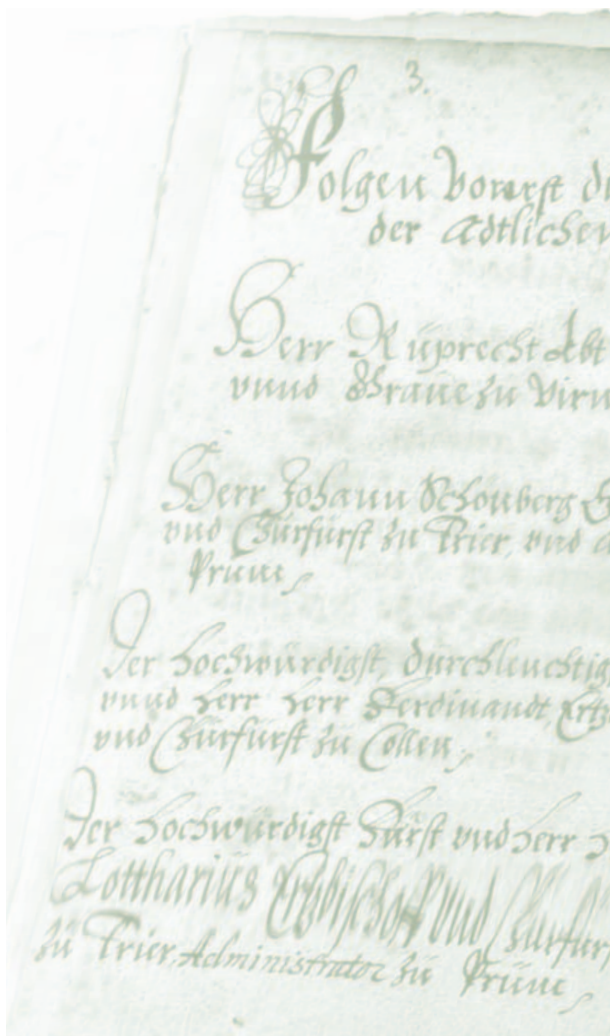 3.
Folgen Vorerst
der Adtlichen
Herr Ruprecht Abt
vnnd Graue zu Virn
Herr Johann Schönberg
vnd Churfürst zu Trier, vnd
Prüm
Der hochwürdigst, durchleuchtig
vnnd herr herr Ferdinandt Ertz
vnd Churfürst zu Collen
Der hochwürdigst Fürst vnd herr
Lottharius Ertzbischoff vnd Churfürs
zu Trier, Administrator zu Prüm